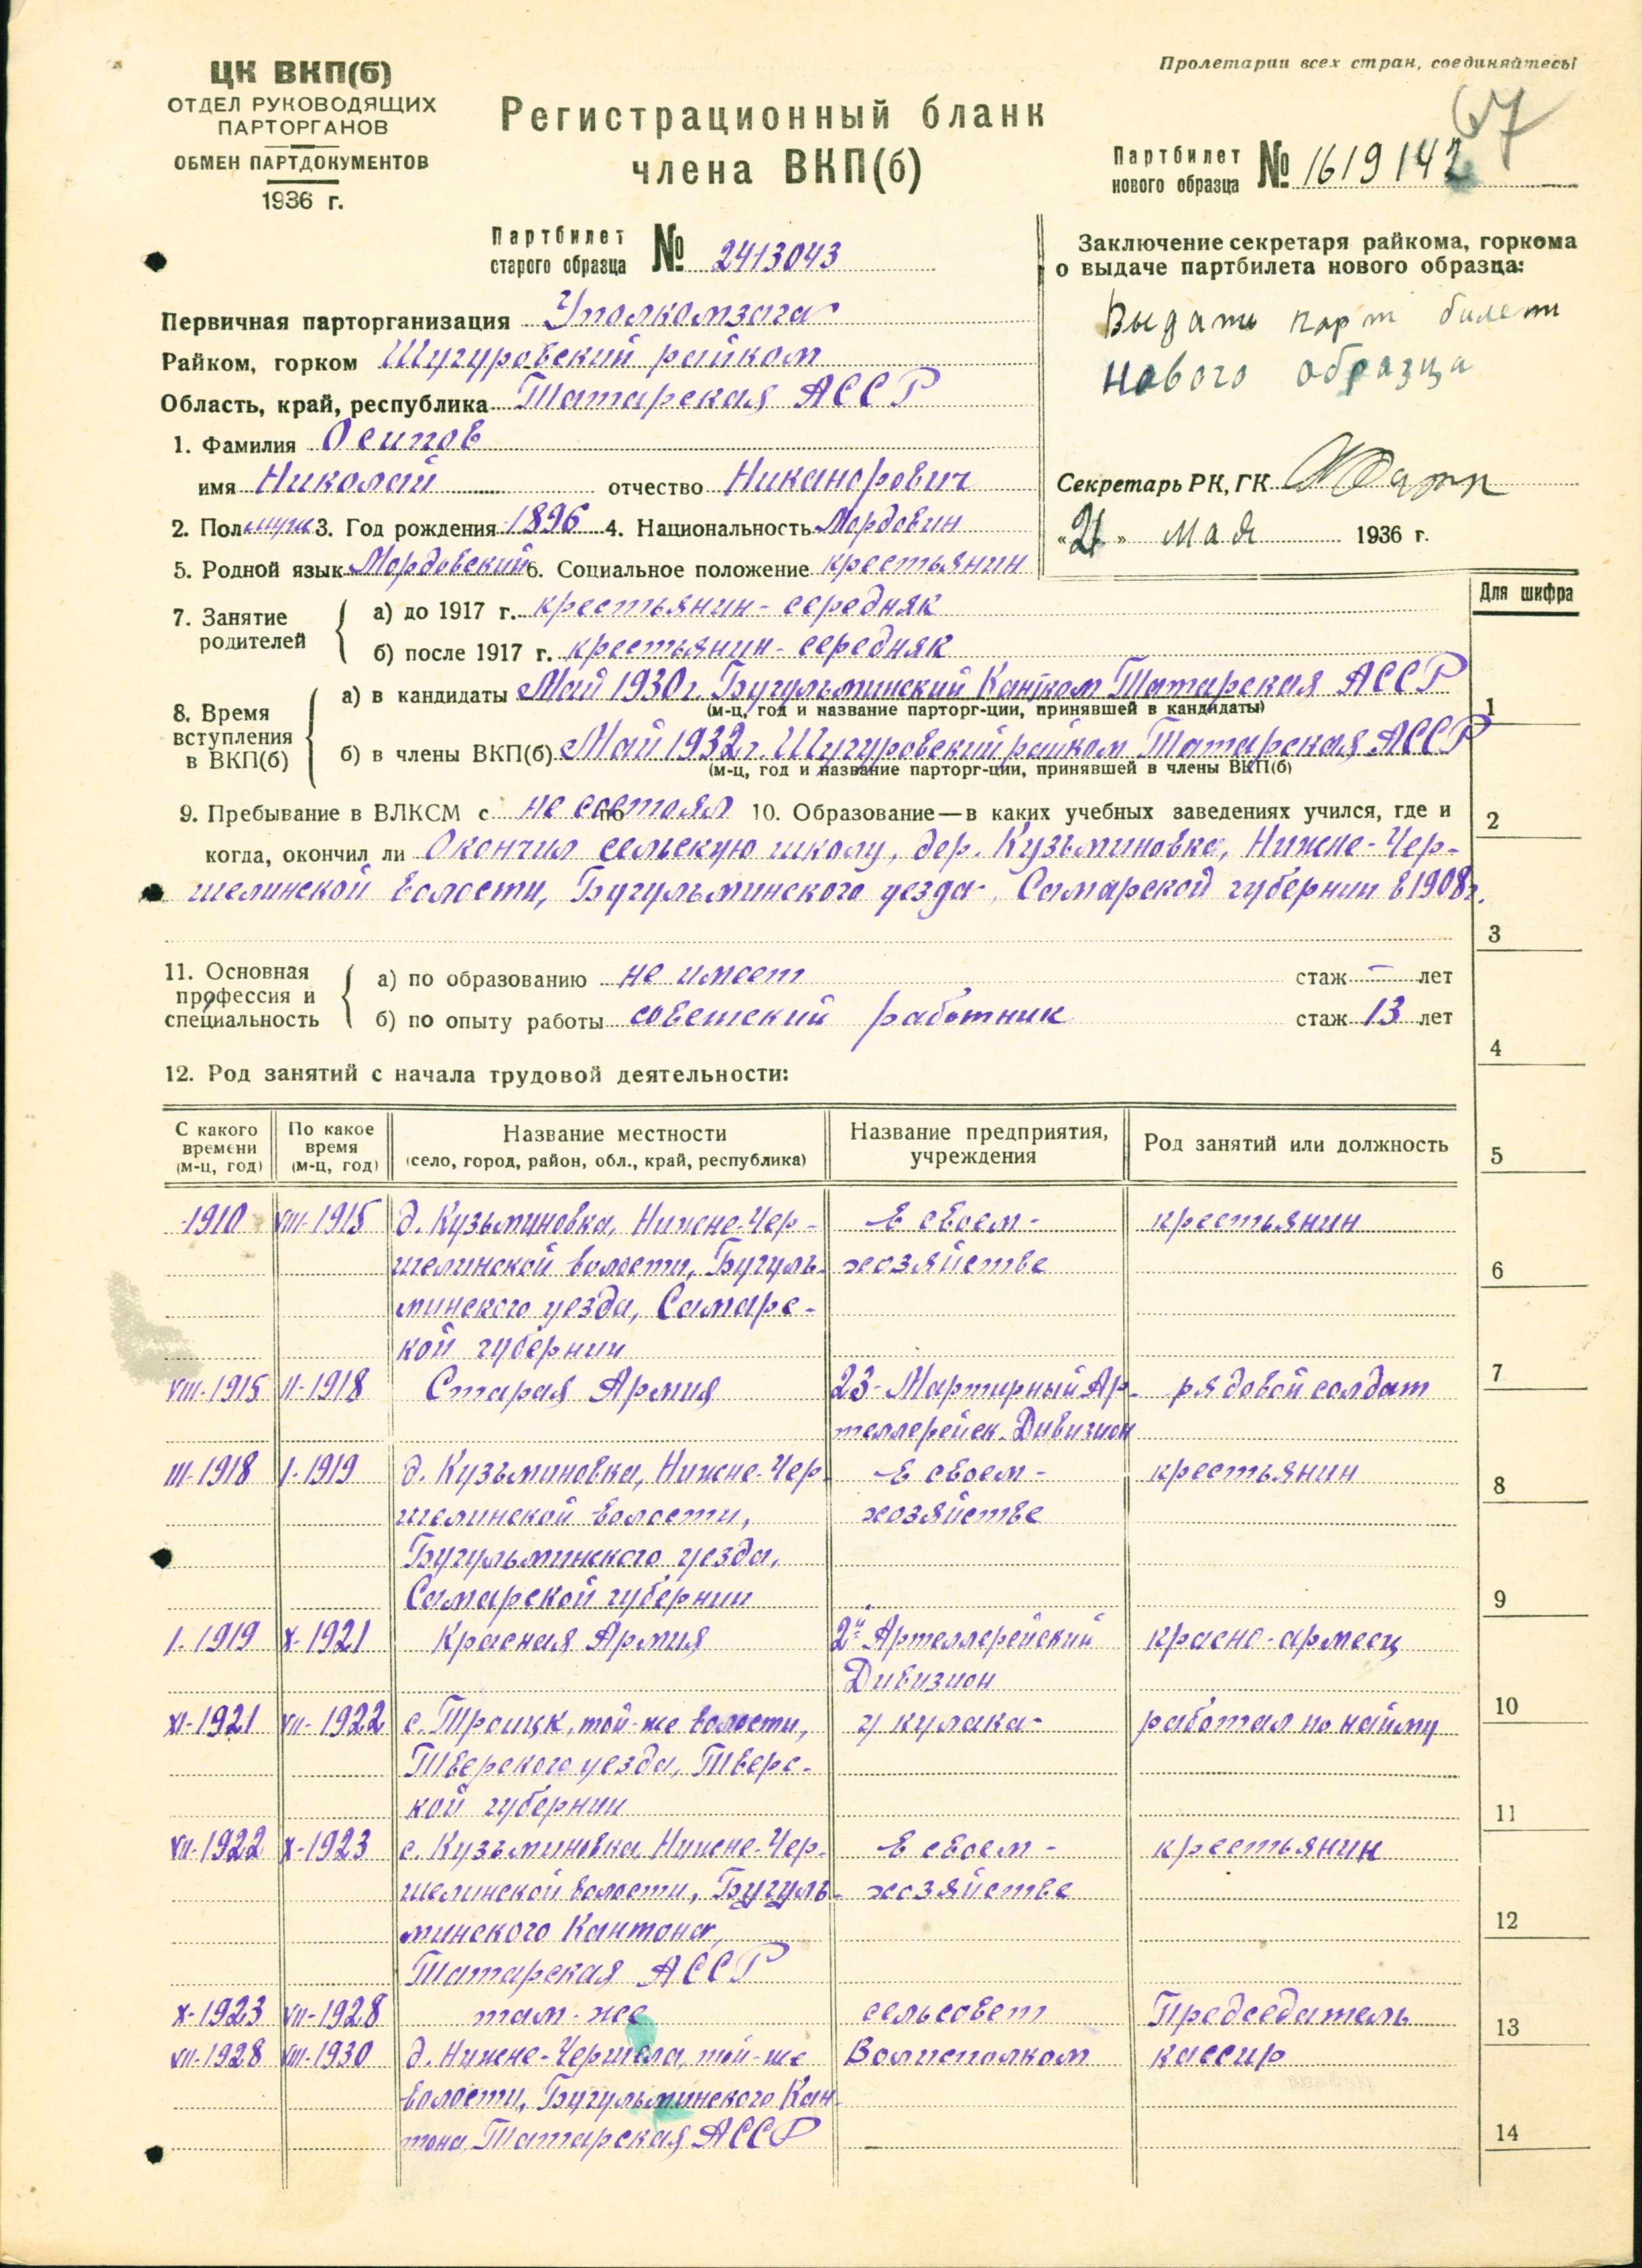 Пролетарии всех стран, соединяйтесь!
ЦК ВКП(б)
ОТДЕЛ РУКОВОДЯЩИХ
ПАРТОРГАНОВ
ОБМЕН ПАРТДОКУМЕНТОВ
1936 г.
Регистрационный бланк
члена ВКП(б)
67
Партбилет
нового образца № 1619142
Партбилет
старого образца № 2413043
Заключение секретаря райкома, горкома
о выдаче партбилета нового образца:
Выдать парт билет
нового образца
Секретарь РК, ГК
«21» мая 1936 г.
Первичная парторганизация Уполкомзага
Райком, горком Шугуровский райком
Область, край, республика Татарская АССР
1. Фамилия Осипов
имя Николай отчество Никанорович
2. Пол муж 3. Год рождения 1896 4. Национальность Мордовин
5. Родной язык Мордовский 6. Социальное положение крестьянин
7. Занятие родителей
а) до 1917 г. крестьянин-середняк
б) после 1917 г. крестьянин-середняк
8. Время вступления в ВКП(б)
а) в кандидаты Май 1930 г. Бугульминский Кантком Татарская АССР
(м-ц, год и название парторг-ции, принявшей в кандидаты)
б) в члены ВКП(б) Май 1932 г. Шугуровский райком Татарская АССР
(м-ц, год и название парторг-ции, принявшей в члены ВКП(б)
9. Пребывание в ВЛКСМ с не состоял по 10. Образование—в каких учебных заведениях учился, где и
когда, окончил ли Окончил сельскую школу, дер. Кузьминовка, Нижне-Чер-
шелинской волости, Бугульминского уезда, Самарской губернии в 1908 г.
11. Основная профессия и специальность
а) по образованию не имеет стаж — лет
б) по опыту работы советский работник стаж 13 лет
12. Род занятий с начала трудовой деятельности:
Для шифра
1
2
3
4
5
6
7
8
9
10
11
12
13
14
С какого времени (м-ц, год)
По какое время (м-ц, год)
Название местности (село, город, район, обл., край, республика)
Название предприятия, учреждения
Род занятий или должность
1910 VIII-1915 д. Кузьминовка, Нижне-Чер- В своем- крестьянин
шелинской волости, Бугуль- хозяйстве
минского уезда, Самарс-
кой губернии
VIII-1915 II-1918 Старая Армия 23-Мартирный Ар- рядовой солдат
теллерейск. Дивизион
III-1918 I-1919 д. Кузьминовка, Нижне-Чер- В своем- крестьянин
шелинской волости, хозяйстве
Бугульминского уезда,
Самарской губернии
I-1919 X-1921 Красная Армия 2й Артеллерейский красно-армеец
Дивизион
XI-1921 VII-1922 с. Троицк, той-же волости, у кулака- работал по найму
Тверского уезда, Тверс-
кой губернии
VII-1922 X-1923 с. Кузьминовка Нижне-Чер- В своем- крестьянин
шелинской волости, Бугуль- хозяйстве
минского Кантона,
Татарская АССР
X-1923 VII-1928 там-же сельсовет Председатель
VII-1928 VIII-1930 д. Нижне-Чершела, той-же Волисполком кассир
волости, Бугульминского Кан-
тона Татарская АССР